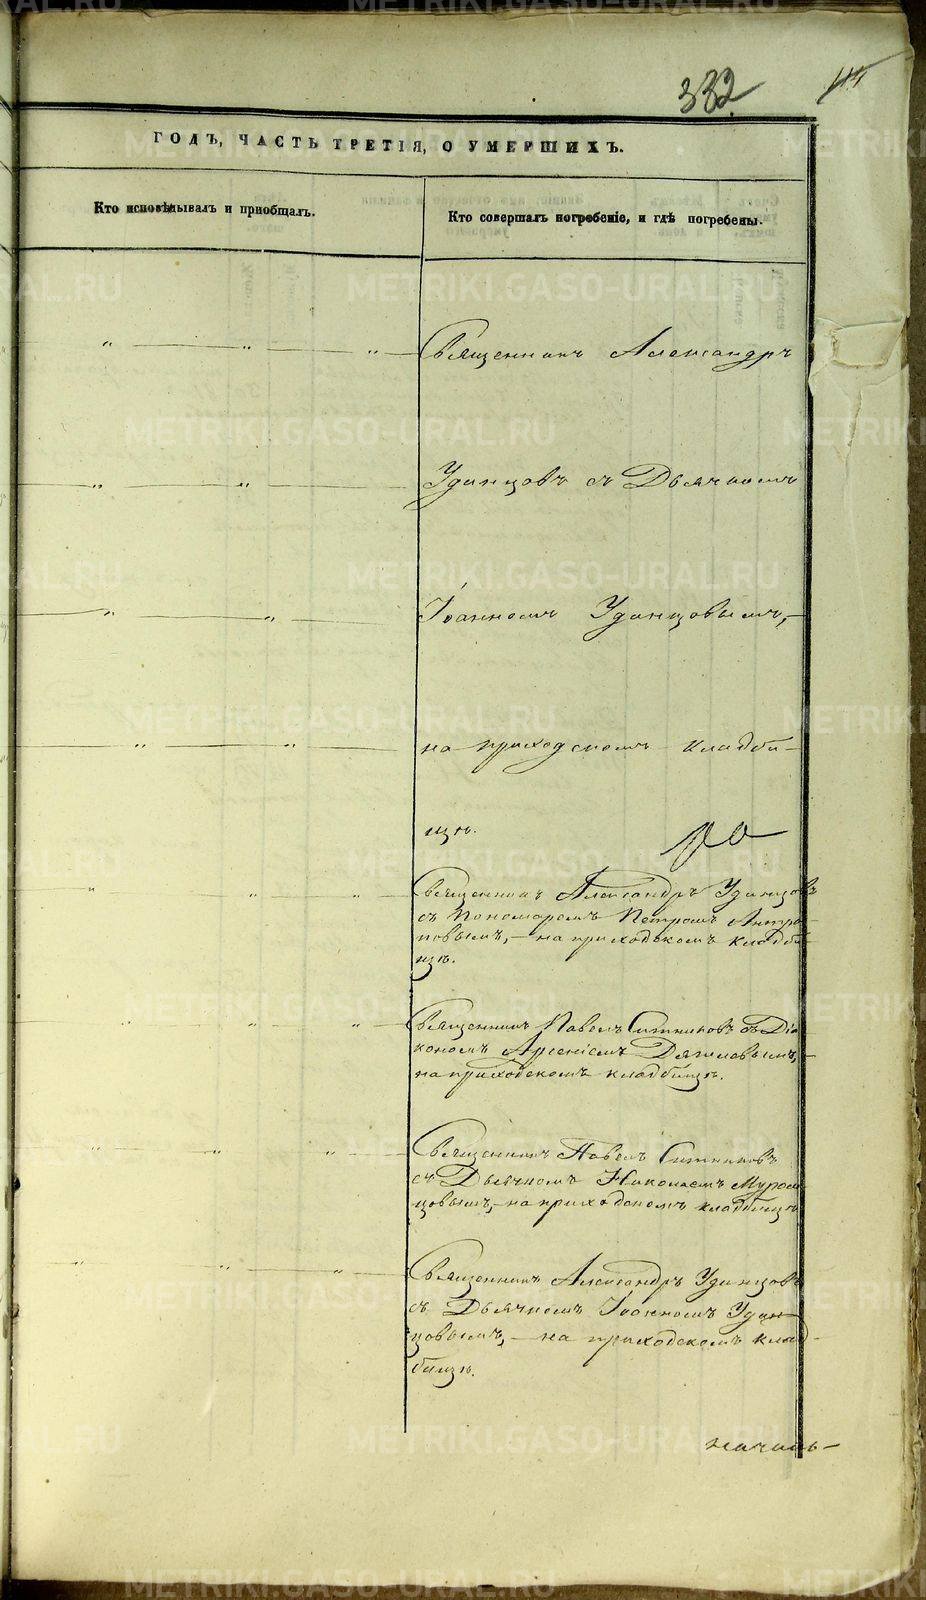 332
ГОДЪ, ЧАСТЬ ТРЕТІЯ, О УМЕРШИХЪ.
Кто исповѣдывалъ и приобщалъ.
Кто совершалъ погребеніе, и гдѣ погребены.
Священникъ Александръ
Удинцовъ съ Дьячкомъ
Іоанномъ Удинцовымъ, —
на приходскомъ кладби-
щѣ.
Священникъ Александръ Удинцовъ
съ Пономаремъ Петромъ Антро-
повымъ, — на приходскомъ кладби-
щѣ.
Священникъ Павелъ Ситниковъ съ Діа
кономъ Арсеніемъ
на приходскомъ кладбищѣ.
Священникъ Павелъ Ситниковъ
съ Дьячкомъ Николаемъ Муром
цовымъ, — на приходскомъ кладбищѣ
Священникъ Александръ Удинцовъ
съ Дьячкомъ Іоанномъ Удин
цовымъ, — на приходскомъ клад-
бищѣ.
METRIKI.GASO-URAL.RU